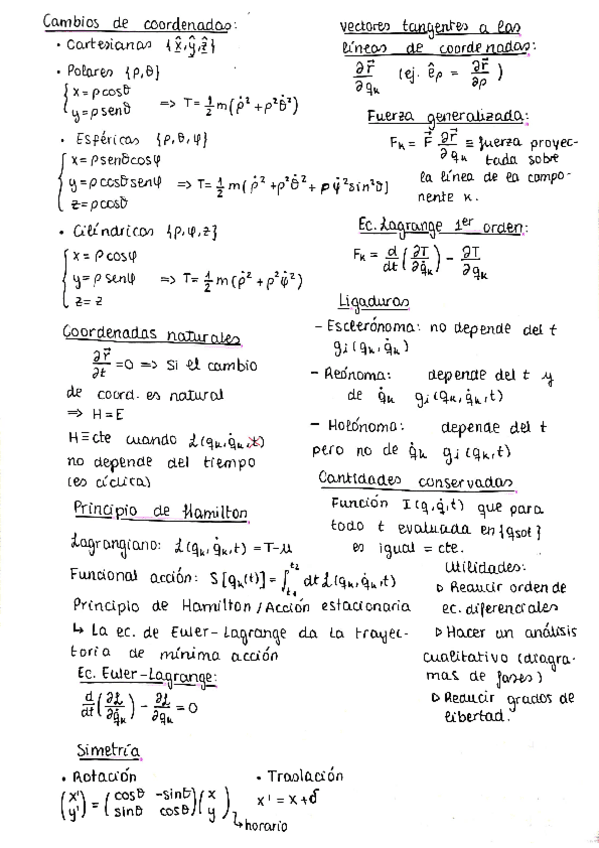 Cambios de coordenadas:
• Cartesianas {x̂,ŷ,ẑ}
• Polares {ρ,θ}
{ x = ρcosθ
y = ρsenθ => T = 1/2 m(ρ̇² + ρ²θ̇²)
• Esféricas {ρ,θ,φ}
{ x = ρsenθcosφ
y = ρcosθsenφ => T = 1/2 m(ρ̇² + ρ²θ̇² + ρφ̇²sin²θ)
z = ρcosθ
• Cilíndricas {ρ,φ,z}
{ x = ρcosφ
y = ρsenφ => T = 1/2 m(ρ̇² + ρ²φ̇²)
z = z
Coordenadas naturales
∂r⃗/∂t = 0 => Si el cambio
de coord. es natural
=> H = E
H ≡ cte cuando L(qₖ,q̇ₖ,t)
no depende del tiempo
(es cíclica)
Principio de Hamilton
Lagrangiano: L(qₖ,q̇ₖ,t) = T-U
Funcional acción: S[qₖ(t)] = ∫t₁^t₂ dt L(qₖ,q̇ₖ,t)
Principio de Hamilton/Acción estacionaria
↳ La ec. de Euler-Lagrange da la trayec-
toria de mínima acción
Ec. Euler-Lagrange:
d/dt(∂L/∂q̇ₖ) - ∂L/∂qₖ = 0
Simetría
• Rotación
(x' y') = (cosθ -sinθ sinθ cosθ)(x y)
↳ horario
• Traslación
x' = x + δ
vectores tangentes a las
líneas de coordenadas:
∂r⃗/∂qₖ (ej. êρ = ∂r⃗/∂ρ)
Fuerza generalizada:
Fₖ = F⃗ ∂r⃗/∂qₖ ≡ fuerza proyec-
tada sobre
la línea de la compo-
nente k.
Ec. Lagrange 1er orden:
Fₖ = d/dt(∂T/∂q̇ₖ) - ∂T/∂qₖ
Ligaduras
- Esclerónoma: no depende del t
gⱼ(qₖ,q̇ₖ)
- Reónoma: depende del t y
de q̇ₖ gⱼ(qₖ,q̇ₖ,t)
- Holónoma: depende del t
pero no de q̇ₖ gⱼ(qₖ,t)
Cantidades conservadas
Función I(q,q̇,t) que para
todo t evaluada en {qsol}
es igual = cte.
Utilidades:
▷ Reducir orden de
ec. diferenciales
▷ Hacer un análisis
cualitativo (diagra-
mas de fases)
▷ Reducir grados de
libertad.